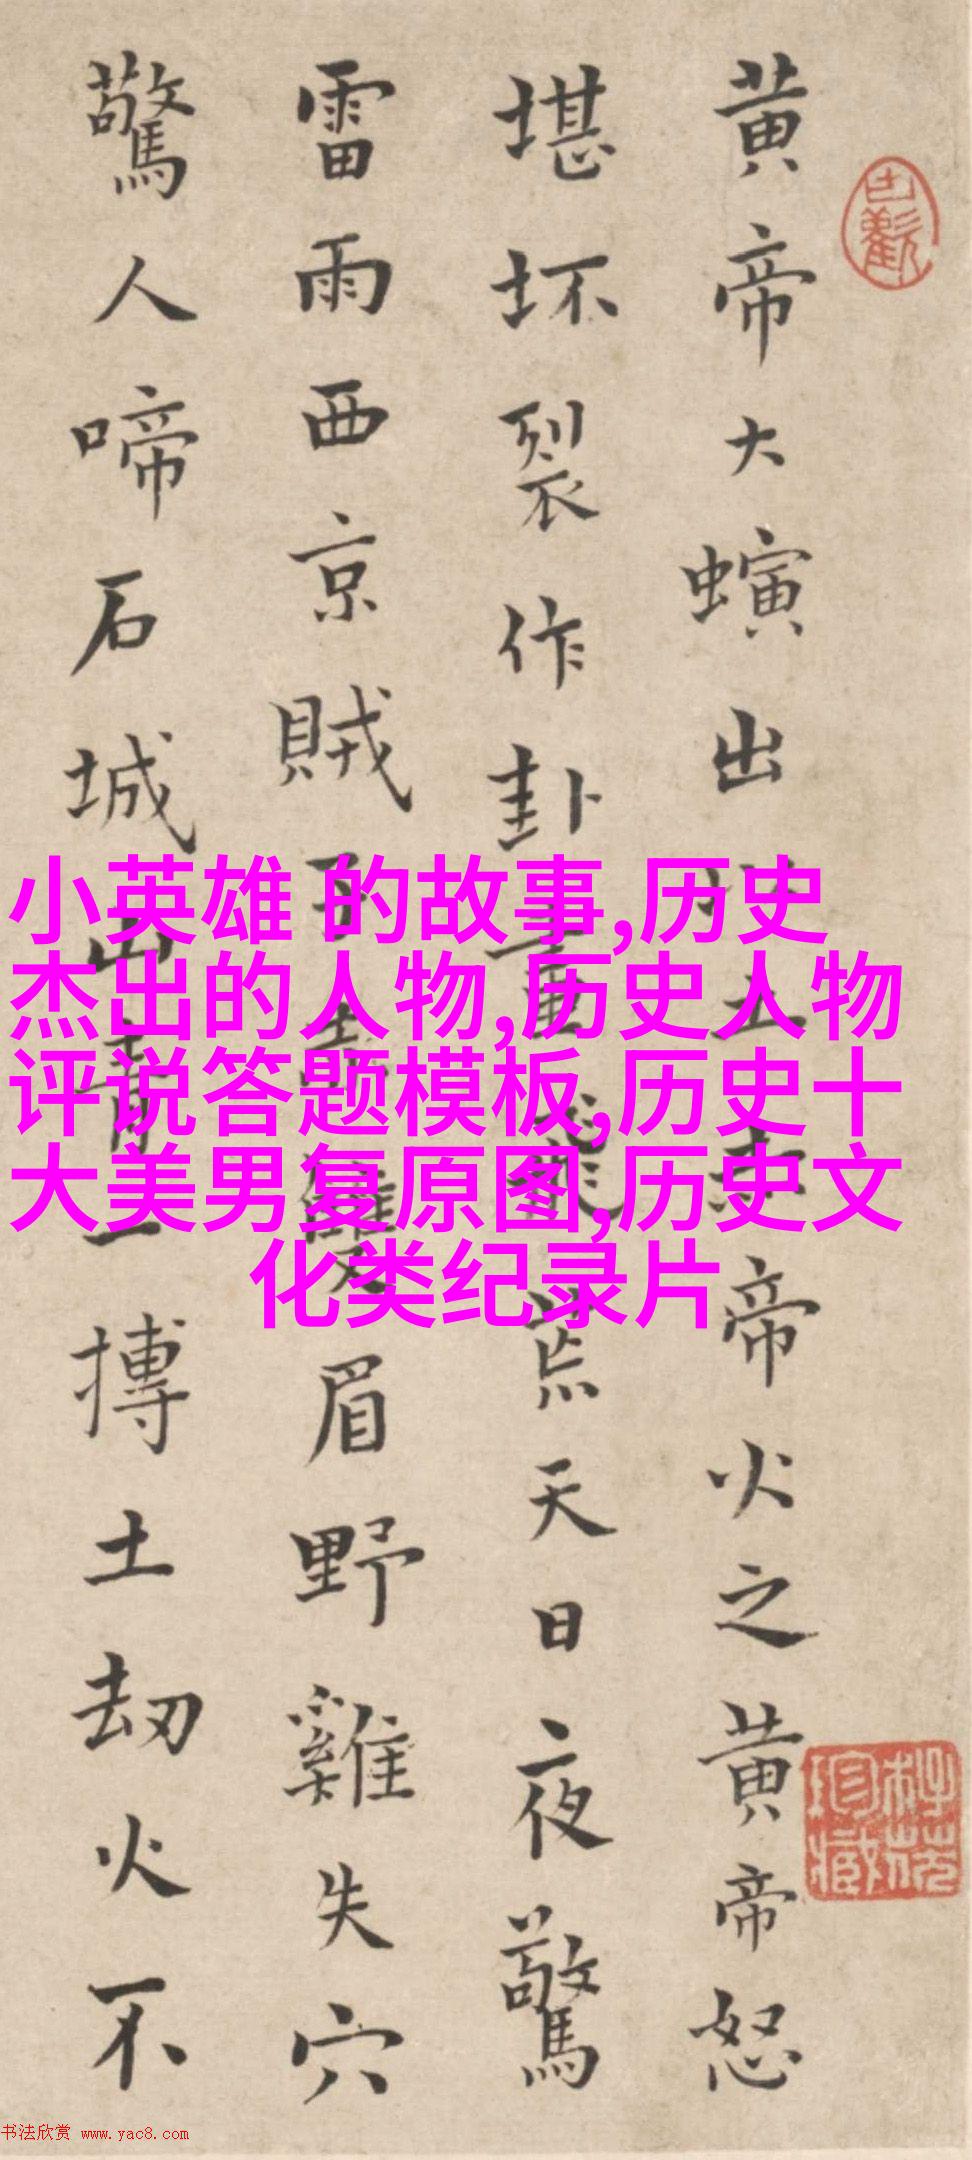 黄帝大螾出土赤帝火之黄帝怒
堪坏裂作卦天日夜驚
雷雨西京賊子眉野雞失穴
驚人啼石城山青一搏土劫火不
小英雄 的故事,历史
杰出的人物,历史人物
评说答题模板,历史十
大美男复原图,历史文
化类纪录片
书法欣赏 www.yac8.com